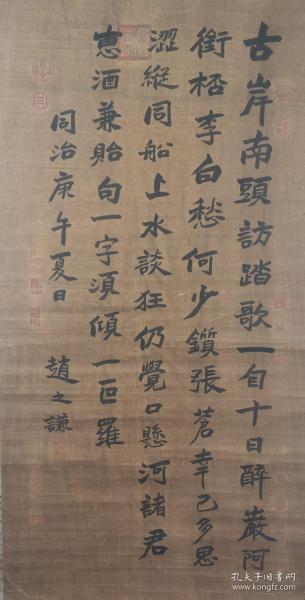 古岸南頭訪踏歌一旬十日醉巖阿
銜桮李白愁何少鑕張蒼幸已多思
澀縱同船上水談狂仍覺口懸河諸君
恵酒兼貽句一字須傾一叵羅
同治庚午夏日
趙之謙
孔夫子旧书网